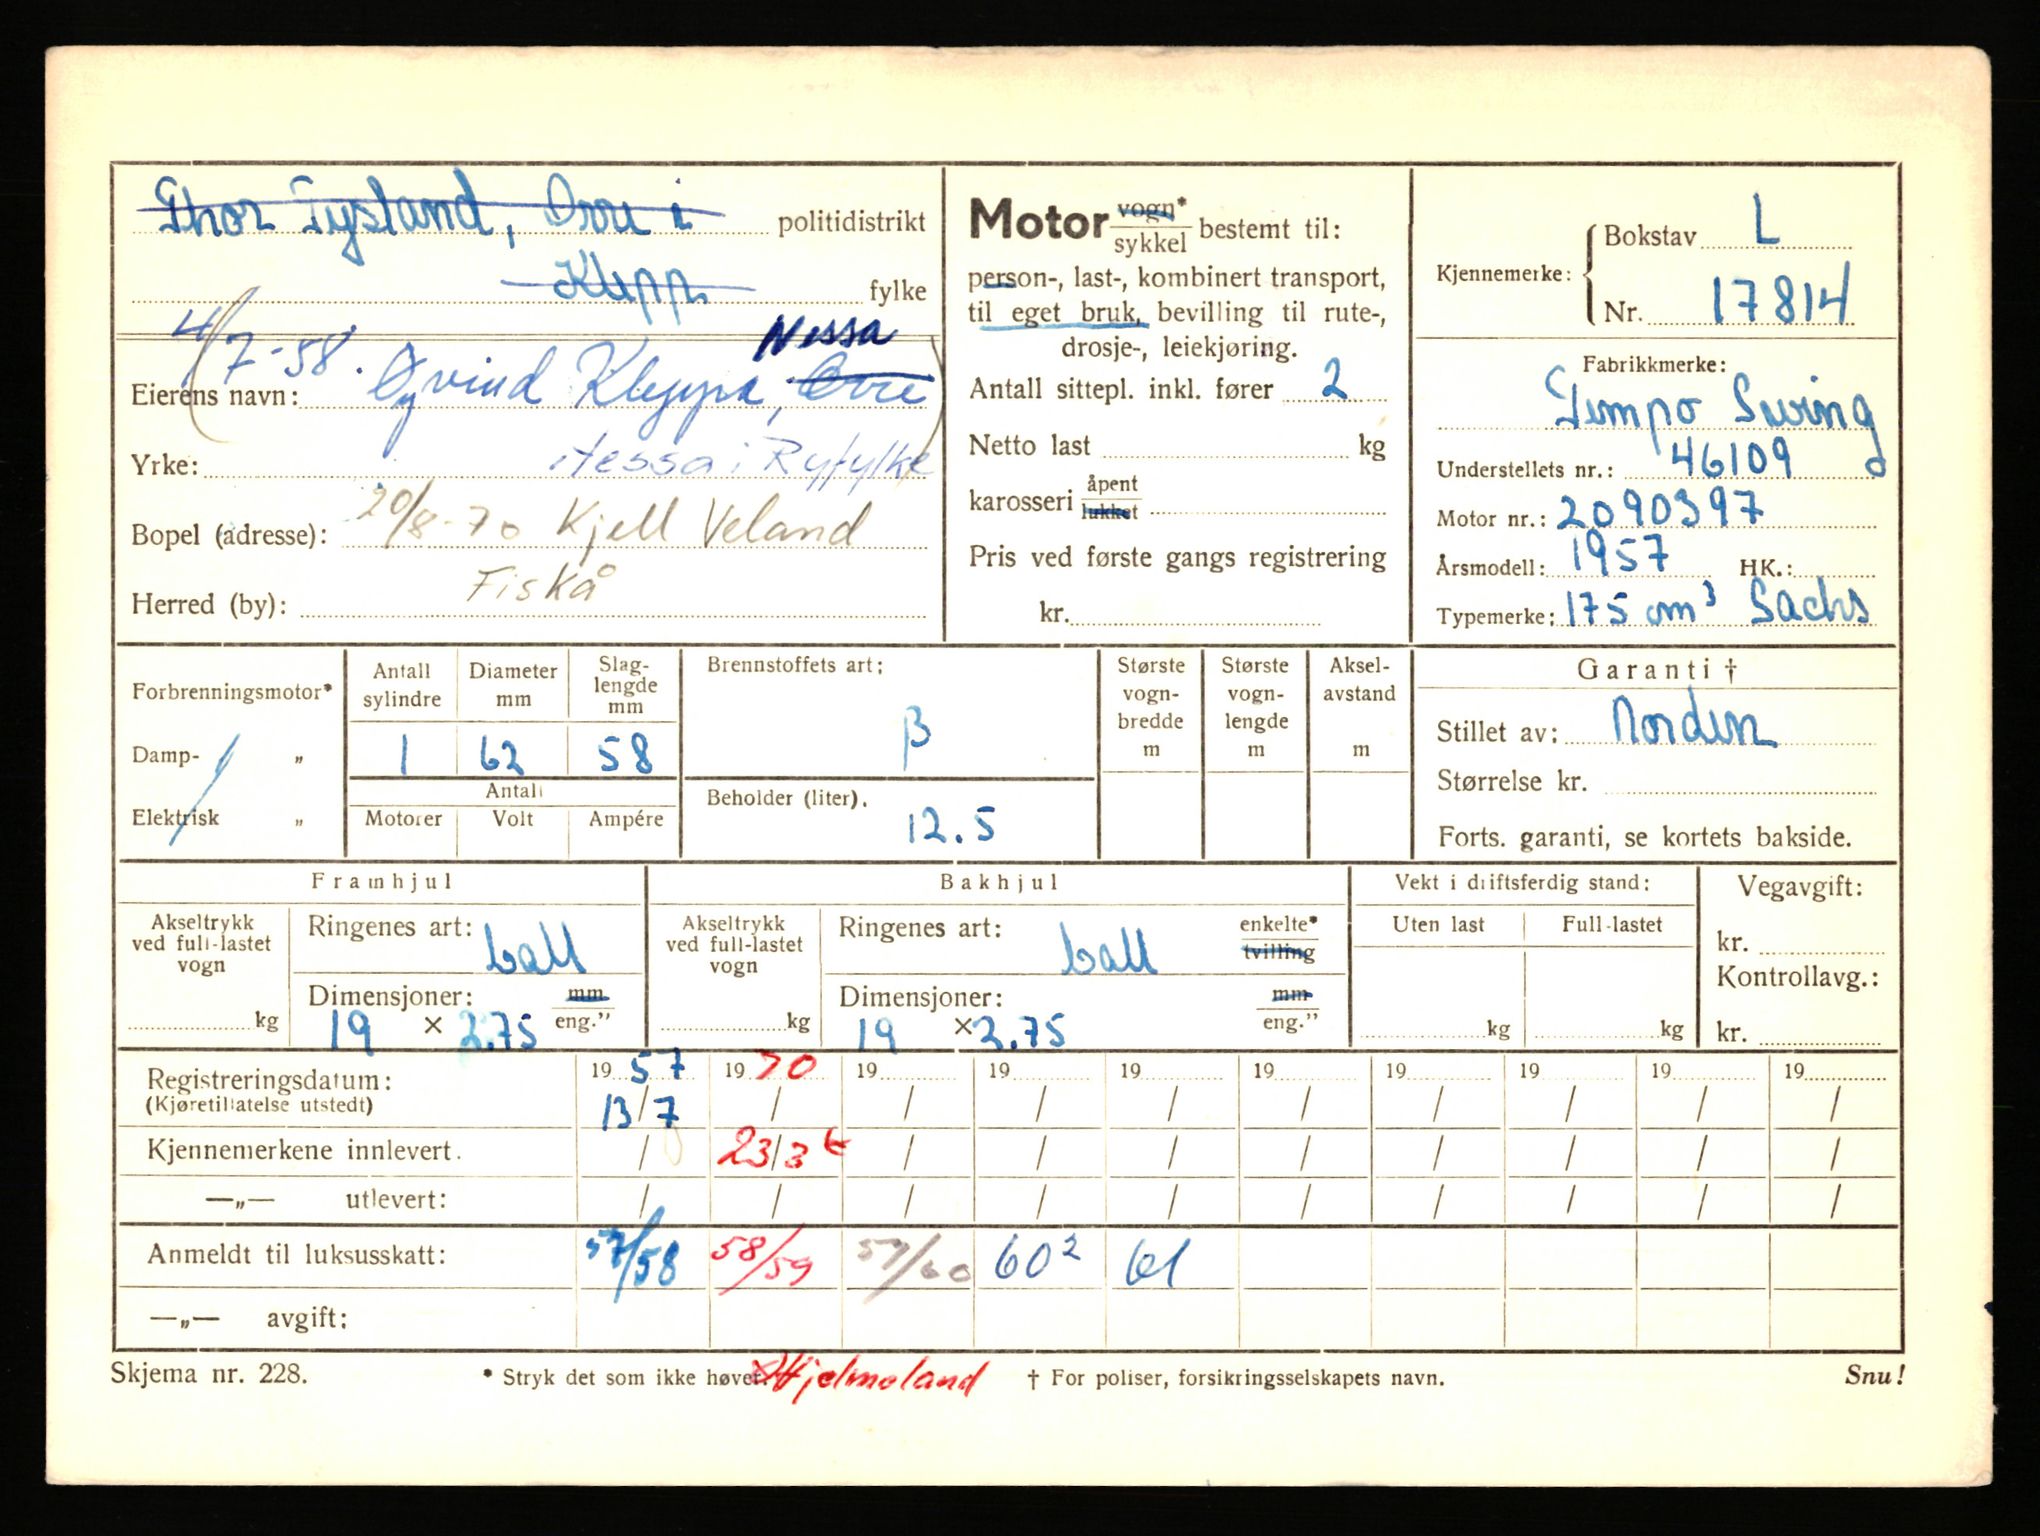 Thor Tysland, Orre i politidistrikt
Klepp fylke
4/7-58. Nessa
Eierens navn: Øyvind Kleppa, Orre
Yrke: Nessa i Ryfylke
Bopel (adresse): 20/8-70 Kjell Veland
Herred (by): Fiskå
Motor vogn* sykkel bestemt til:
person-, last-, kombinert transport,
til eget bruk, bevilling til rute-,
drosje-, leiekjøring.
Antall sittepl. inkl. fører 2
Netto last kg
karosseri åpent lukket
Pris ved første gangs registrering
kr.
Kjennemerke: Bokstav L
Nr. 17814
Fabrikkmerke:
Tempo Swing
Understellets nr.: 46109
Motor nr.: 2090397
Årsmodell: 1957 HK.:
Typemerke: 175 cm³ Sachs
Forbrenningsmotor*
Damp- „
Elektrisk „
Antall sylindre Diameter mm Slag-lengde mm
1 62 58
Antall
Motorer Volt Ampére
Brennstoffets art:
B
Beholder (liter).
12.5
Største vogn-bredde m
Største vogn-lengde m
Aksel-avstand m
Garanti †
Stillet av: Norden
Størrelse kr.
Forts. garanti, se kortets bakside.
Framhjul
Akseltrykk ved full-lastet vogn
kg
Ringenes art: ball
Dimensjoner: mm eng.”
19 × 2.75
Bakhjul
Akseltrykk ved full-lastet vogn
kg
Ringenes art: ball enkelte* tvilling
Dimensjoner: mm eng.”
19 × 2.75
Vekt i driftsferdig stand:
Uten last Full-lastet
kg kg
Vegavgift:
kr.
Kontrollavg.:
kr.
Registreringsdatum: 1957 1970 19 19 19 19 19 19 19 19
(Kjøretillatelse utstedt) 13/7 / / / / / / / / /
Kjennemerkene innlevert. / 23/3 / / / / / / / /
—„— utlevert: / / / / / / / / / /
Anmeldt til luksusskatt: 57/58 58/59 59/60 60² 61
—„— avgift:
Skjema nr. 228. * Stryk det som ikke høver. Hjelmeland † For poliser, forsikringsselskapets navn. Snu!